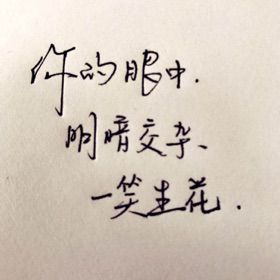 你的眼中.
明暗交杂、
一笑生花.